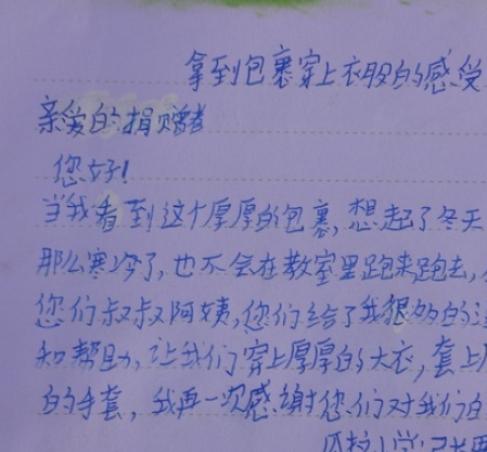 拿到包裹穿上衣服的感受
亲爱的捐赠者
您好!
当我看到这个厚厚的包裹,想起了冬天
那么寒冷了,也不会在教室里跑来跑去,
您们叔叔阿姨,您们给了我很多的
和帮助,让我们穿上厚厚的大衣,套上
的手套,我再一次感谢您们对我们的
小学